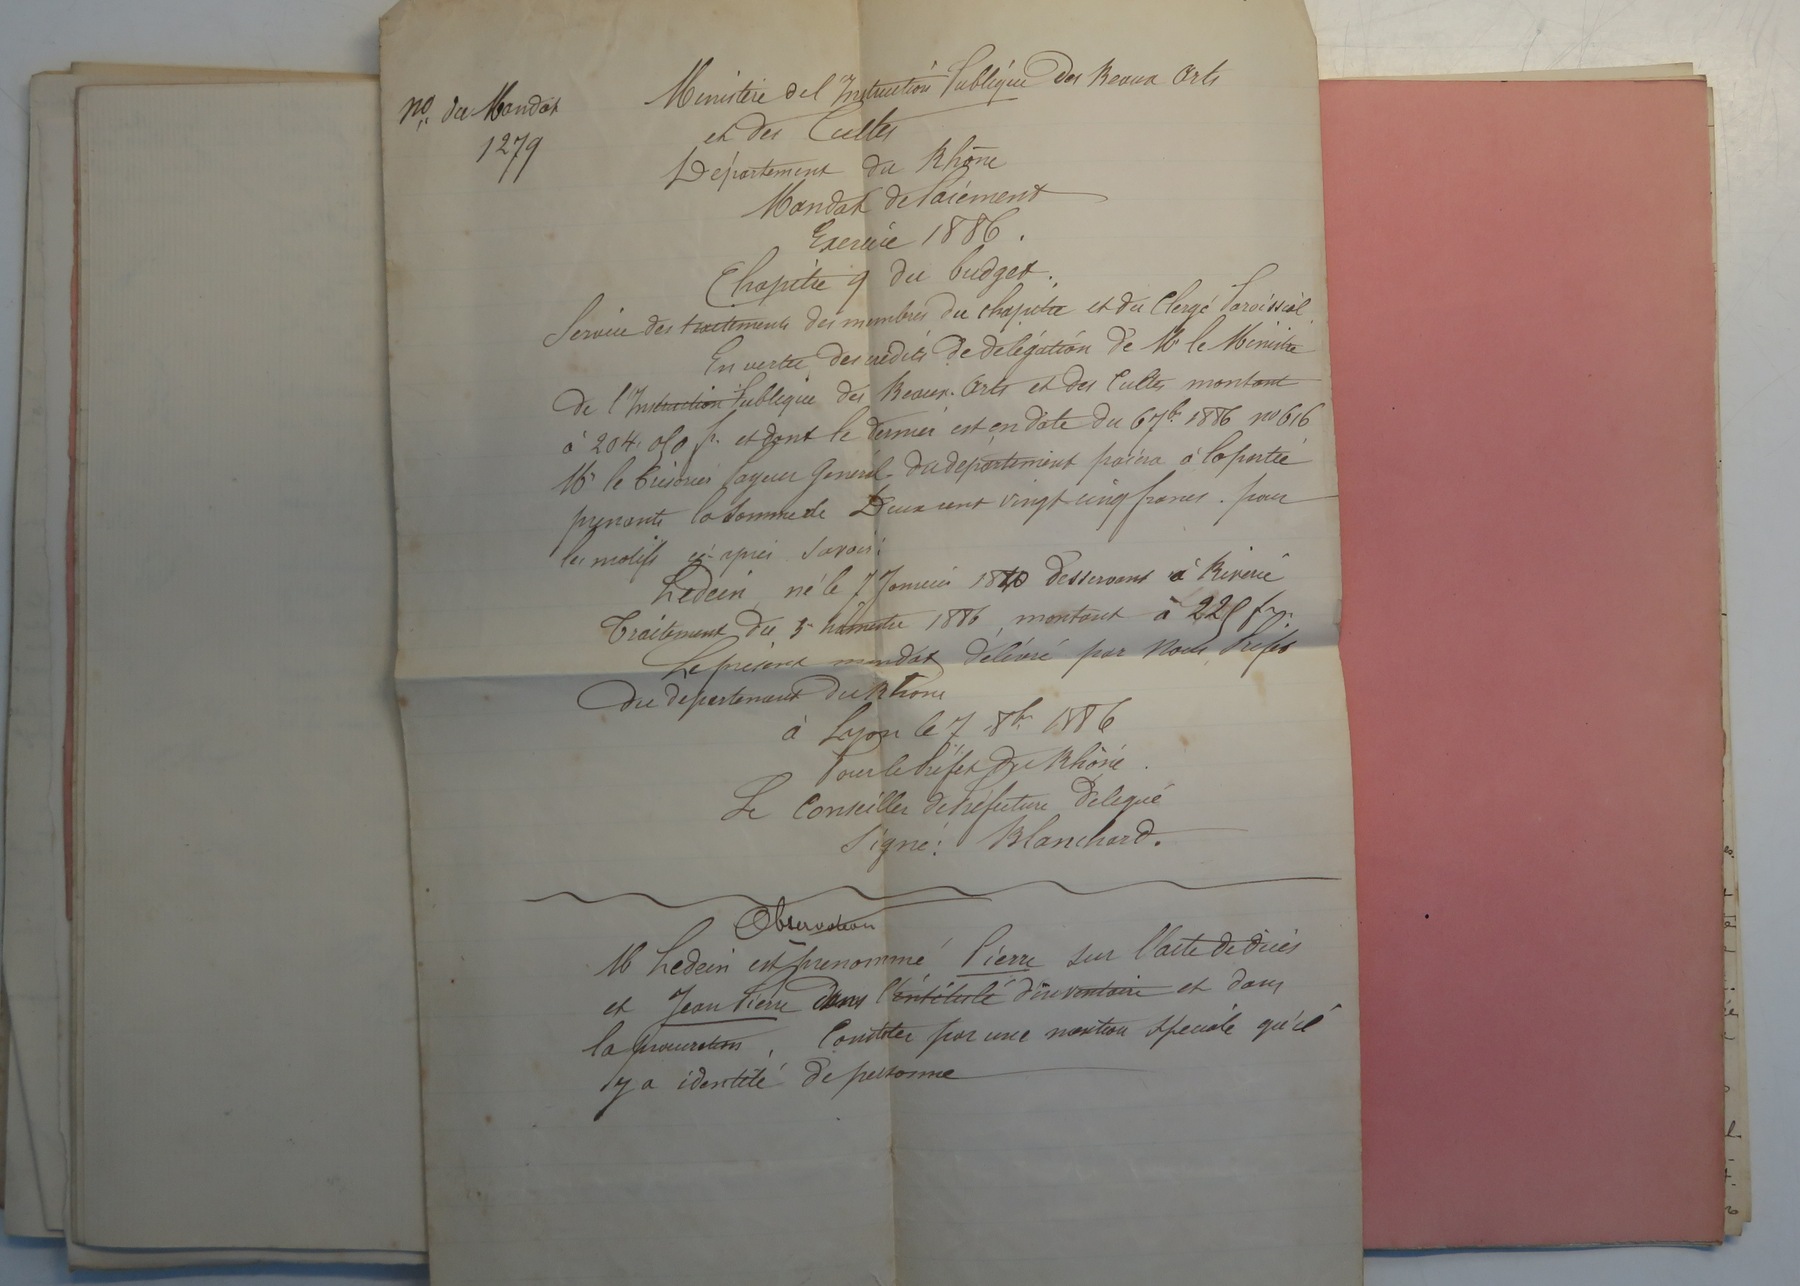 No. du Mandat
1279
Ministère de l'Instruction Publique des Beaux Arts
et des Cultes
Département du Rhône
Mandat de Paiement
Exercice 1886.
Chapitre 9 du budget.
Service des traitements des membres du chapitre et du Clergé Paroissial
En vertu des crédits de délégation de Mr le Ministre
de l'Instruction Publique des Beaux-Arts et des Cultes montant
à 204.050 f. et dont le dernier est en date du 6 7bre 1886 no 616
Mr le Trésorier Payeur Général du département paiera à la partie
prenante la somme de Deux cent vingt cinq francs. pour
les motifs ci-après savoir:
Ledein, né le 7 Janvier 1840 desservant à Riverie
Traitement du 3e trimestre 1886 montant à 225 f
Le présent mandat délivré par Nous, Préfet
du département du Rhône
à Lyon le 7 8bre 1886
Pour le Préfet du Rhône.
Le Conseiller de Préfecture Délégué
Signé: Blanchard.
Observation
M Ledein est prénommé Pierre sur l'acte de décès
et Jean Pierre dans l'intitulé d'inventaire et dans
la procuration. Constater par une mention spéciale qu'il
y a identité de personne